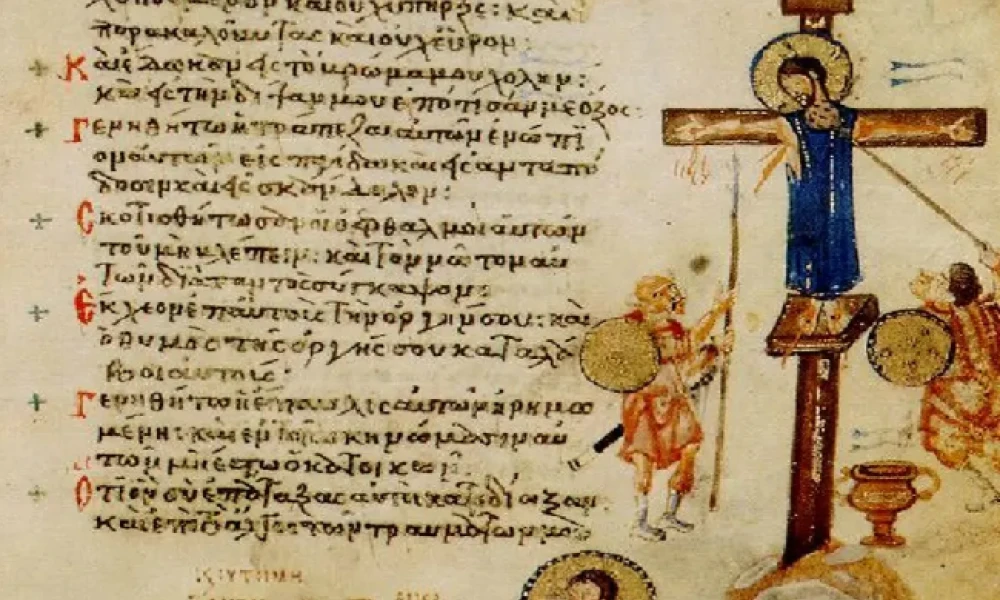 παρακαλοῦντας καὶ οὐχ εὗρον:
Καὶ ἔδωκαν εἰς τὸ βρῶμα μου χολὴν:
καὶ εἰς τὴν δίψαν μου ἐπότισάν με ὄξος:
Γενηθήτω ἡ τράπεζα αὐτῶν ἐνώπι
ον αὐτῶν εἰς παγίδα καὶ εἰς ἀνταπό
δοσιν καὶ εἰς σκάνδαλον:
Σκοτισθήτωσαν οἱ ὀφθαλμοὶ αὐτῶν
τοῦ μὴ βλέπειν: καὶ τὸν νῶτον αὐ
τῶν διὰ παντὸς σύγκαμψον:
Ἔκχεον ἐπ' αὐτοὺς τὴν ὀργήν σου: καὶ
ὁ θυμὸς τῆς ὀργῆς σου καταλά
βοι αὐτούς:
Γενηθήτω ἡ ἔπαυλις αὐτῶν ἠρημω
μένη: καὶ ἐν τοῖς σκηνώμασιν αὐ
τῶν μὴ ἔστω ὁ κατοικῶν:
Ὅτι ὃν σὺ ἐπάταξας αὐτοὶ κατεδίωξαν
καὶ ἐπὶ τὸ ἄλγος τῶν τραυμάτων μου